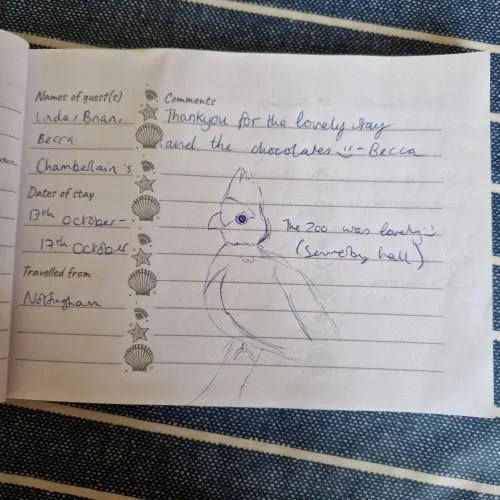 Names of guest(s)
Linda, Brian,
Becca
Chamberlain's
Dates of stay
17th October -
17th October
Travelled from
Nottingham
Comments
Thankyou for the lovely stay
and the chocolates :) - Becca
The Zoo was lovely :)
(Sewerby hall)